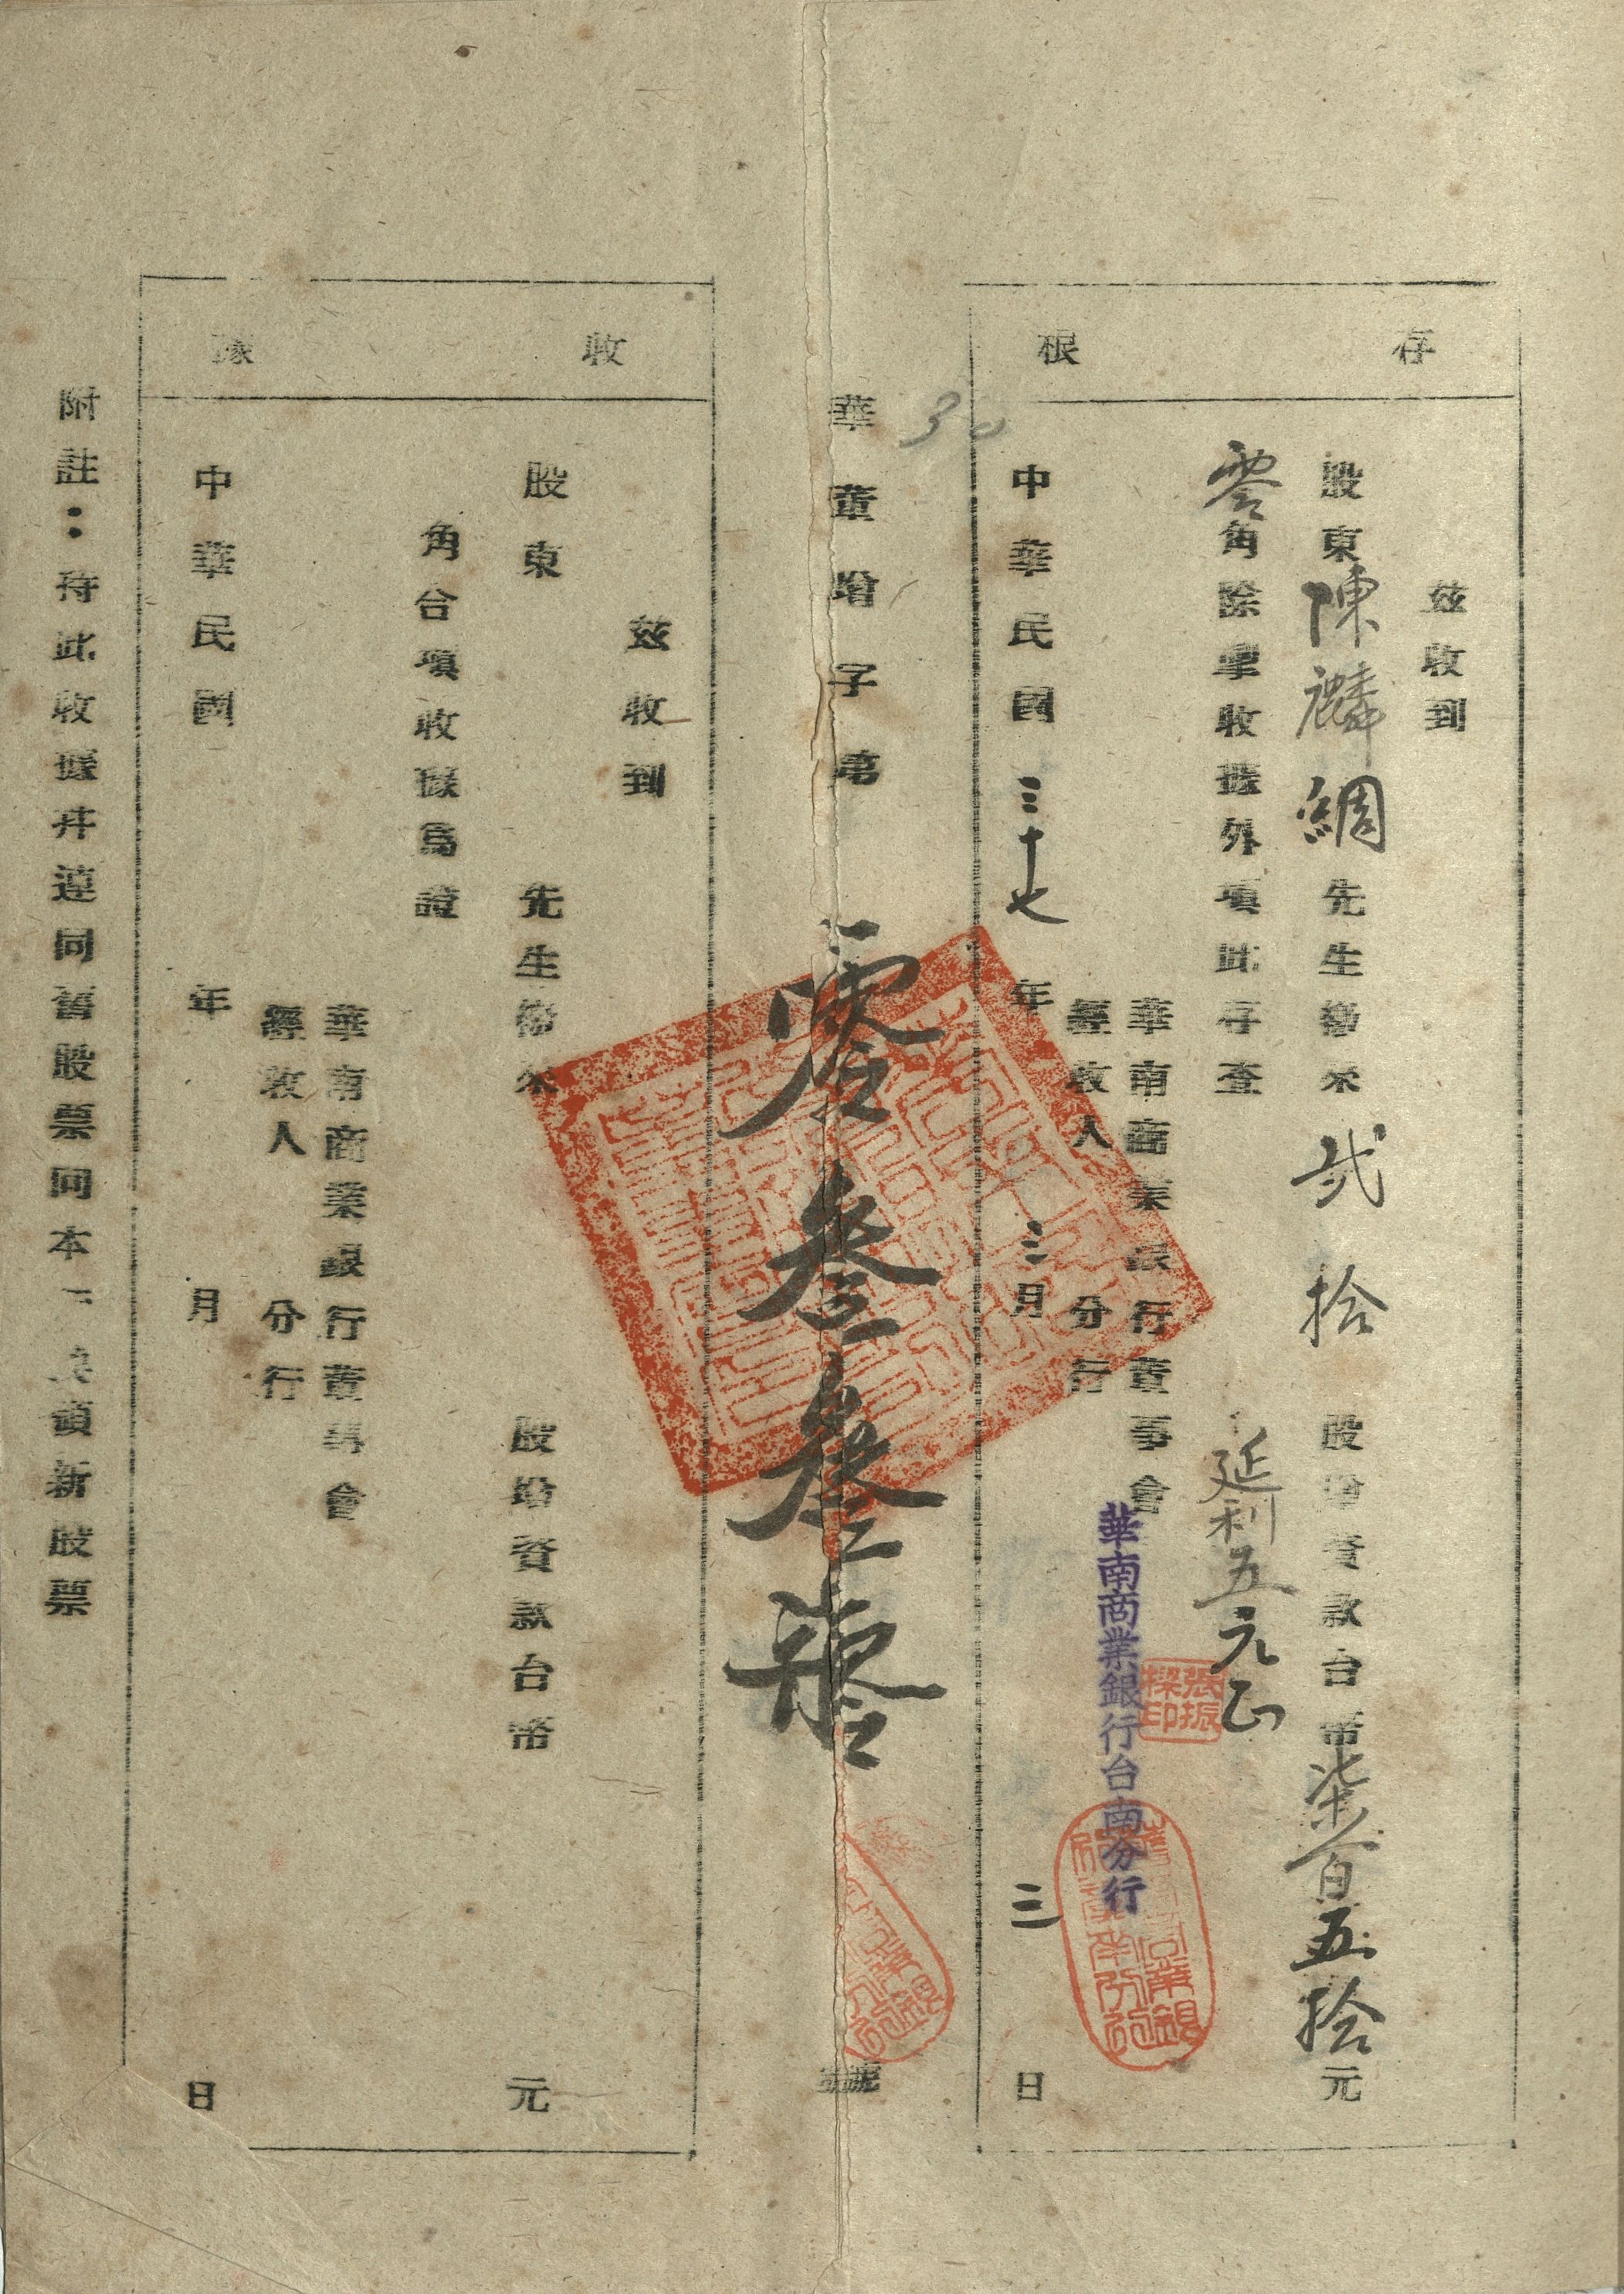 存根
茲收到
股東陳麟綢先生繳來弐拾股增資款台幣柒百五拾元
零角除掣收據外項此存查
延利五元正
華南商業銀行董事會
華南商業銀行台南分行
張振樑印
經收人 分行
中華民國三十七年三月三日
30
華董增字第零叁叁柒號
收據
茲收到
股東 先生繳來 股增資款台幣 元
角合項收據為證
華南商業銀行董事會
經收人 分行
中華民國 年 月 日
附註：待此收據并連同舊股票向本 領新股票